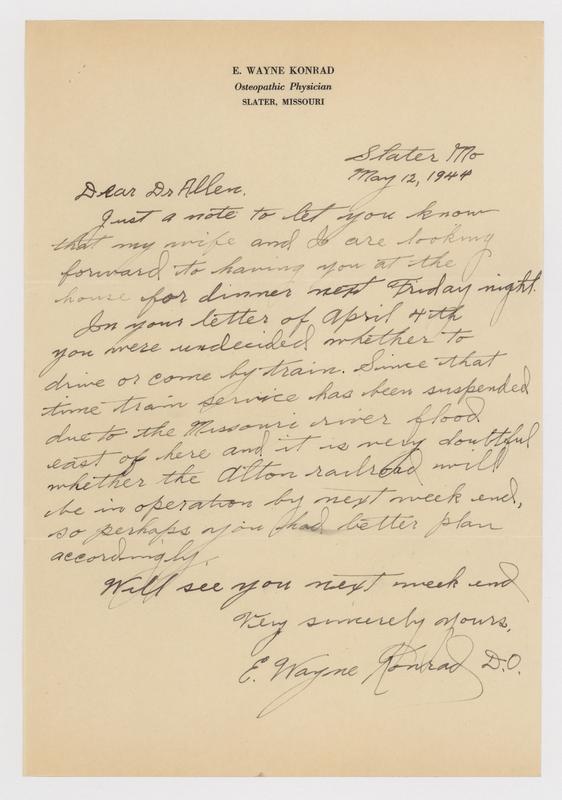 E. WAYNE KONRAD
Osteopathic Physician
SLATER, MISSOURI
Slater Mo
May 12, 1944
Dear Dr Allen.
Just a note to let you know
that my wife and I are looking
forward to having you at the
house for dinner next Friday night.
In your letter of April 4th
you were undecided whether to
drive or come by train. Since that
time train service has been suspended
due to the Missouri river flood
east of here and it is very doubtful
whether the Alton railroad will
be in operation by next week end,
so perhaps you had better plan
accordingly.
Will see you next week end
Very sincerely yours,
E. Wayne Konrad D.O.